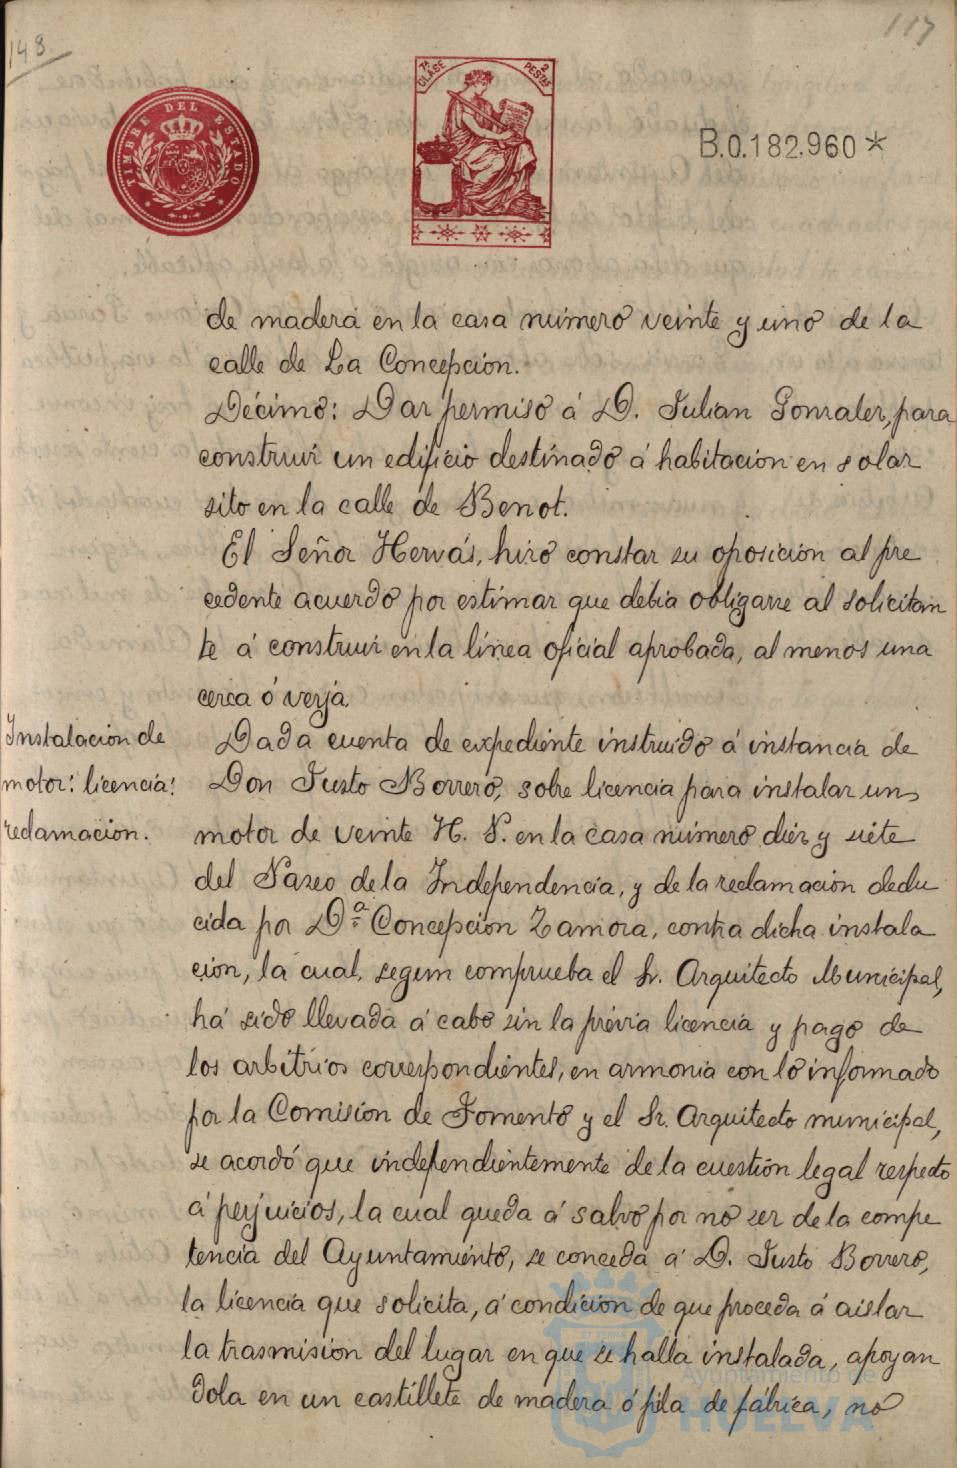 148.
117
TIMBRE DEL ESTADO
7ª CLASE
2 PESTAS
B.0.182.960*
de madera en la casa número veinte y uno de la
calle de La Concepción.
Décimo: Dar permiso á D. Julian Gonzalez, para
construir un edificio destinado á habitacion en solar
sito en la calle de Benot.
El Señor Hervás, hizo constar su oposición al pre
cedente acuerdo por estimar que debia obligarse al solicitan
te á construir en la línea oficial aprobada, al menos una
cerca ó verja.
Instalacion de
motor: licencia:
reclamacion.
Dada cuenta de expediente instruido á instancia de
Don Justo Borrero, sobre licencia para instalar un
motor de veinte H. P. en la casa número diez y siete
del Paseo de la Independencia, y de la reclamación dedu
cida por Dª Concepción Zamora, contra dicha instala
ción, la cual, segun comprueba el Sr. Arquitecto Municipal,
há sido llevada á cabo sin la prévia licencia y pago de
los arbitrios correspondientes, en armonia con lo informado
por la Comisión de Fomento y el Sr. Arquitecto municipal,
se acordó que independientemente de la cuestión legal respecto
á perjuicios, la cual queda á salvo por no ser de la compe
tencia del Ayuntamiento, se conceda á D. Justo Borrero,
la licencia que solicita, á condición de que proceda á aislar
la trasmisión del lugar en que se halla instalada, apoyan
dola en un castillete de madera ó pila de fábrica, no
Ayuntamiento de
HUELVA